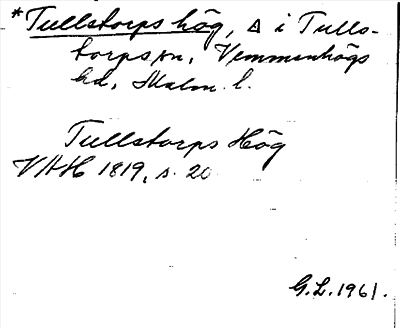 *Tullstorps hög, Δ i Tulls-
torps sn, Vemmenhögs
hd, Malm. l.
Tullstorps Hög
VAH 1819, s. 20
G.L. 1961.